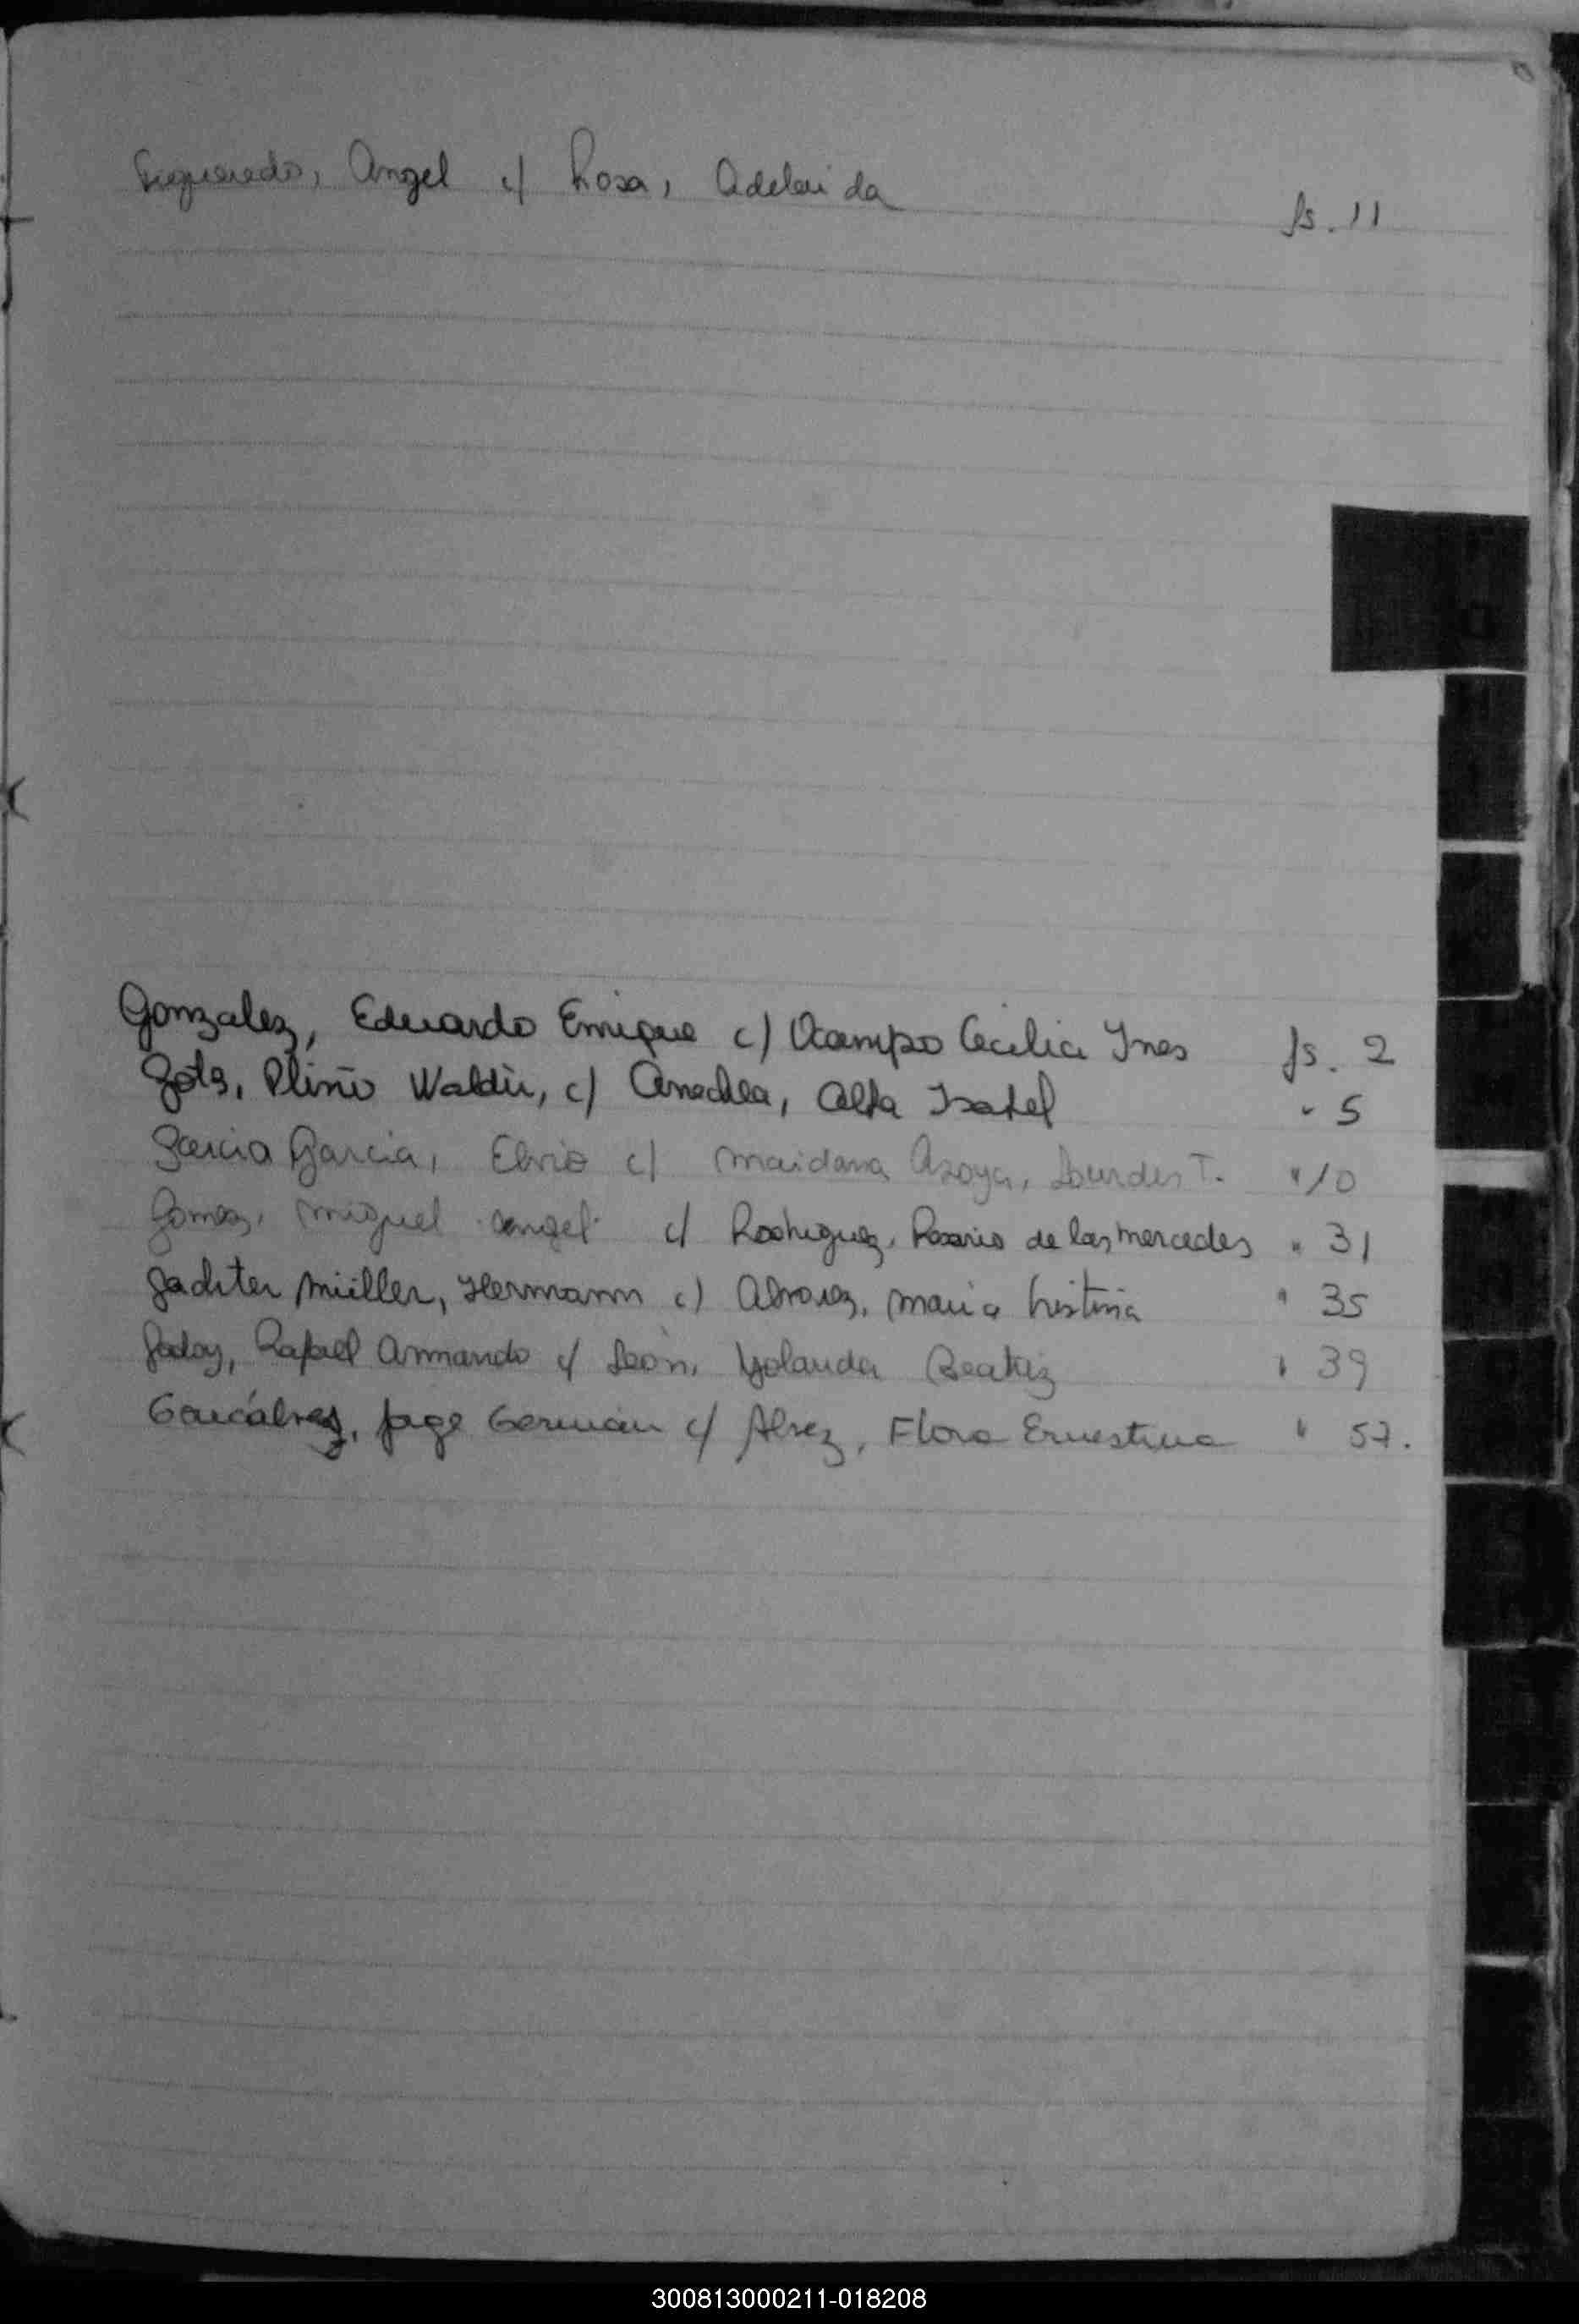 Figueredo, Angel c/ Rosa, Adelaida fs. 11
Gonzalez, Eduardo Enrique c/ Ocampo Cecilia Ines fs. 2
Plinio Waldir, c/ Isabel " 5
Garcia Garcia, Elvio c/ Maidana Azoya, Lourdes T. " 10
Gomez, Miguel Angel c/ Rodriguez, Rosario de las Mercedes " 31
Gachter Müller, Hermann c/ Alvarez, Maria Cristina " 35
Godoy, Rafael Armando c/ León, Yolanda Beatriz " 39
Goncálvez, Jorge Germán c/ Alvez, Flora Ernestina " 57.
300813000211-018208